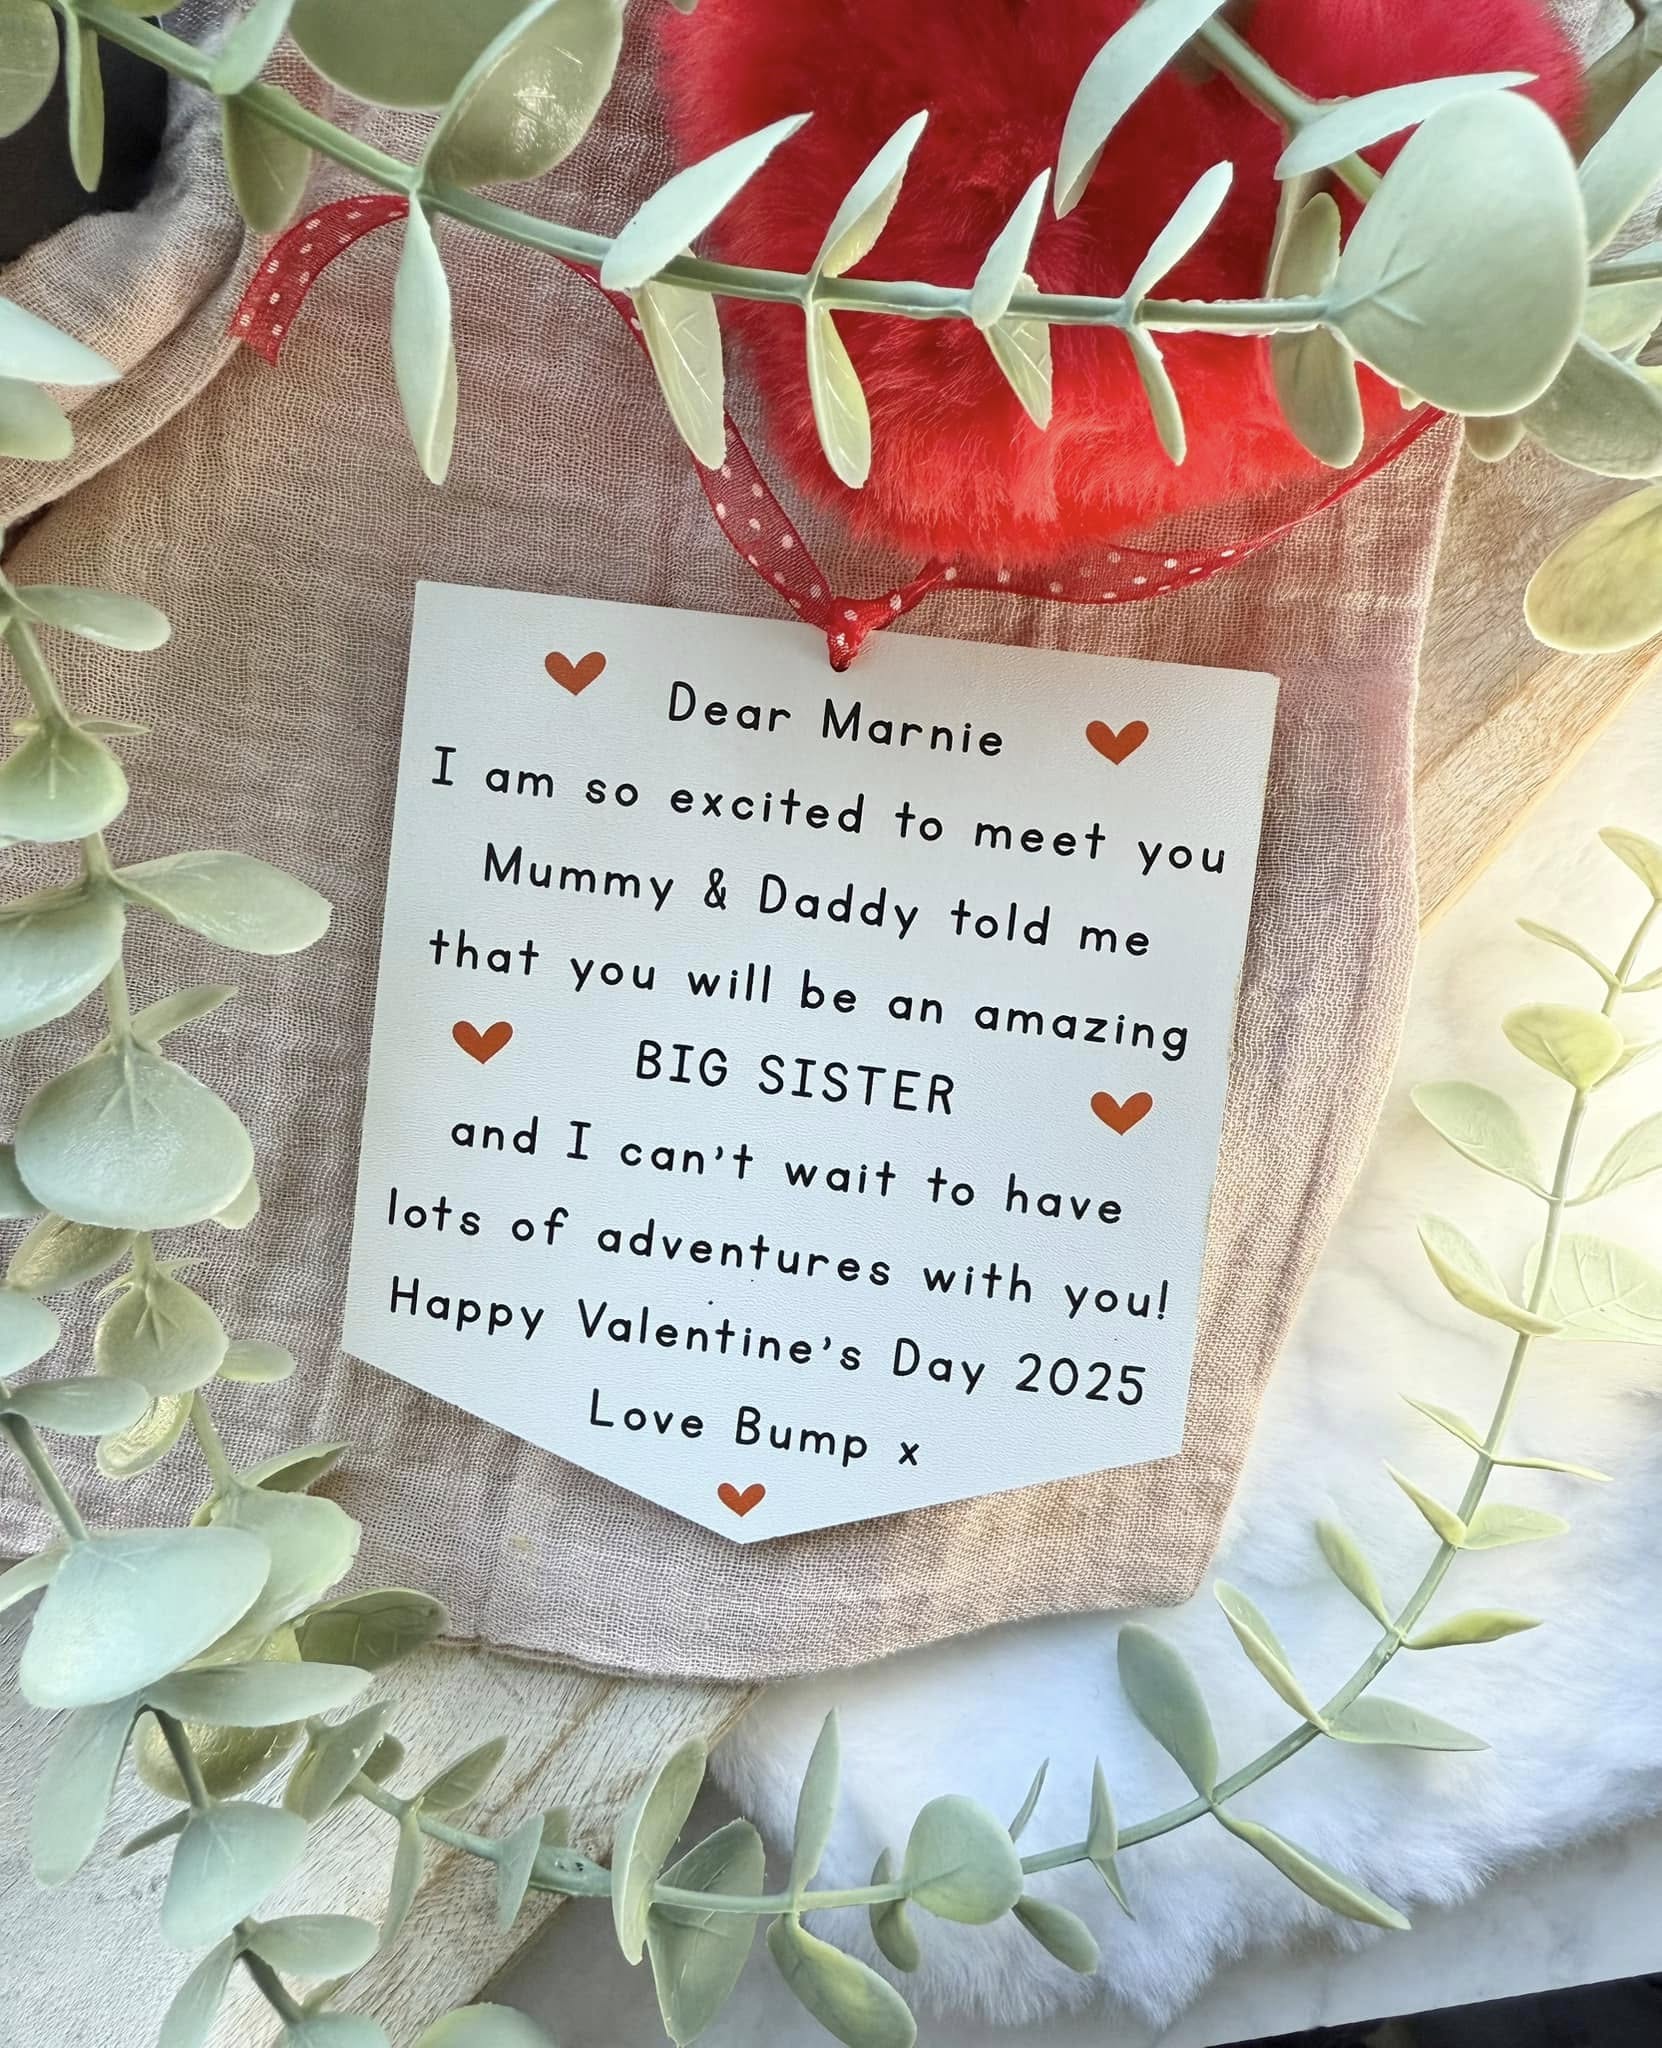 Dear Marnie
I am so excited to meet you
Mummy & Daddy told me
that you will be an amazing
BIG SISTER
and I can't wait to have
lots of adventures with you!
Happy Valentine's Day 2025
Love Bump x